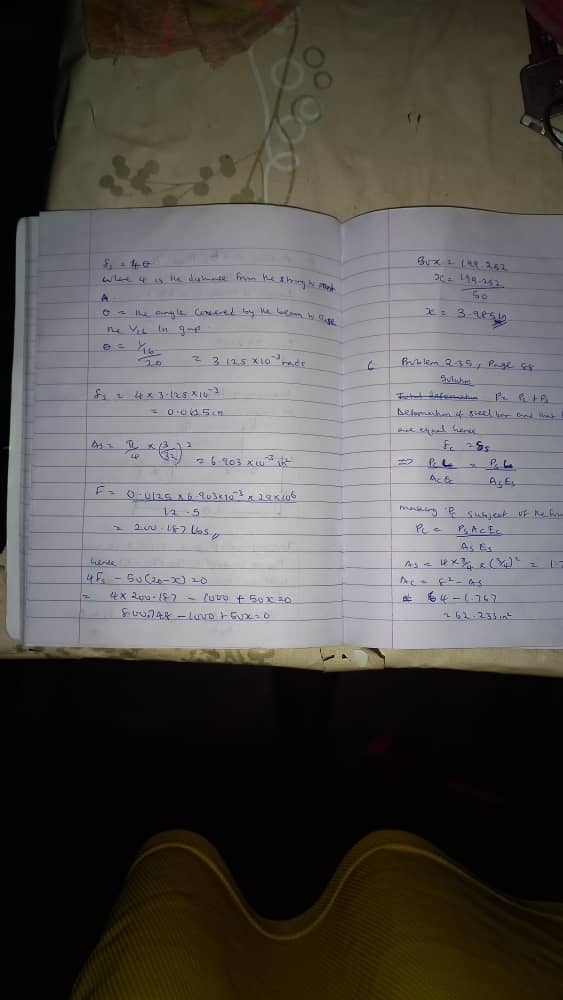 δs = 4θ
where 4 is the distance from the string to point
A
θ = the angle covered by the beam to close
the 1/16 in gap
θ = 1/16 / 20 = 3.125 × 10⁻³ rads
δs = 4 × 3.125 × 10⁻³
= 0.0625in
As = π/4 × (3/32)² = 6.903 × 10⁻³ in²
F = 0.0125 × 6.903×10⁻³ × 29×10⁶ / 12.5
= 200.187 lbs
hence
4Fs − 50(20−x) = 0
= 4 × 200.187 − 1000 + 50x = 0
800.748 − 1000 + 50x = 0
50x = 199.252
x = 199.252 / 50
x = 3.985in
6 Problem 2.35, Page 88
Solution
P = Pc + Ps
Deformation of steel bar and
are equal hence
δc = δs
⇒ PcL / AcEc = PsL / AsEs
making Pc subject of the
Pc = PsAcEc / AsEs
As = 4 × π/4 × (3/4)² = 1.7
Ac = 8² − As
64 − 1.767
= 62.233in²